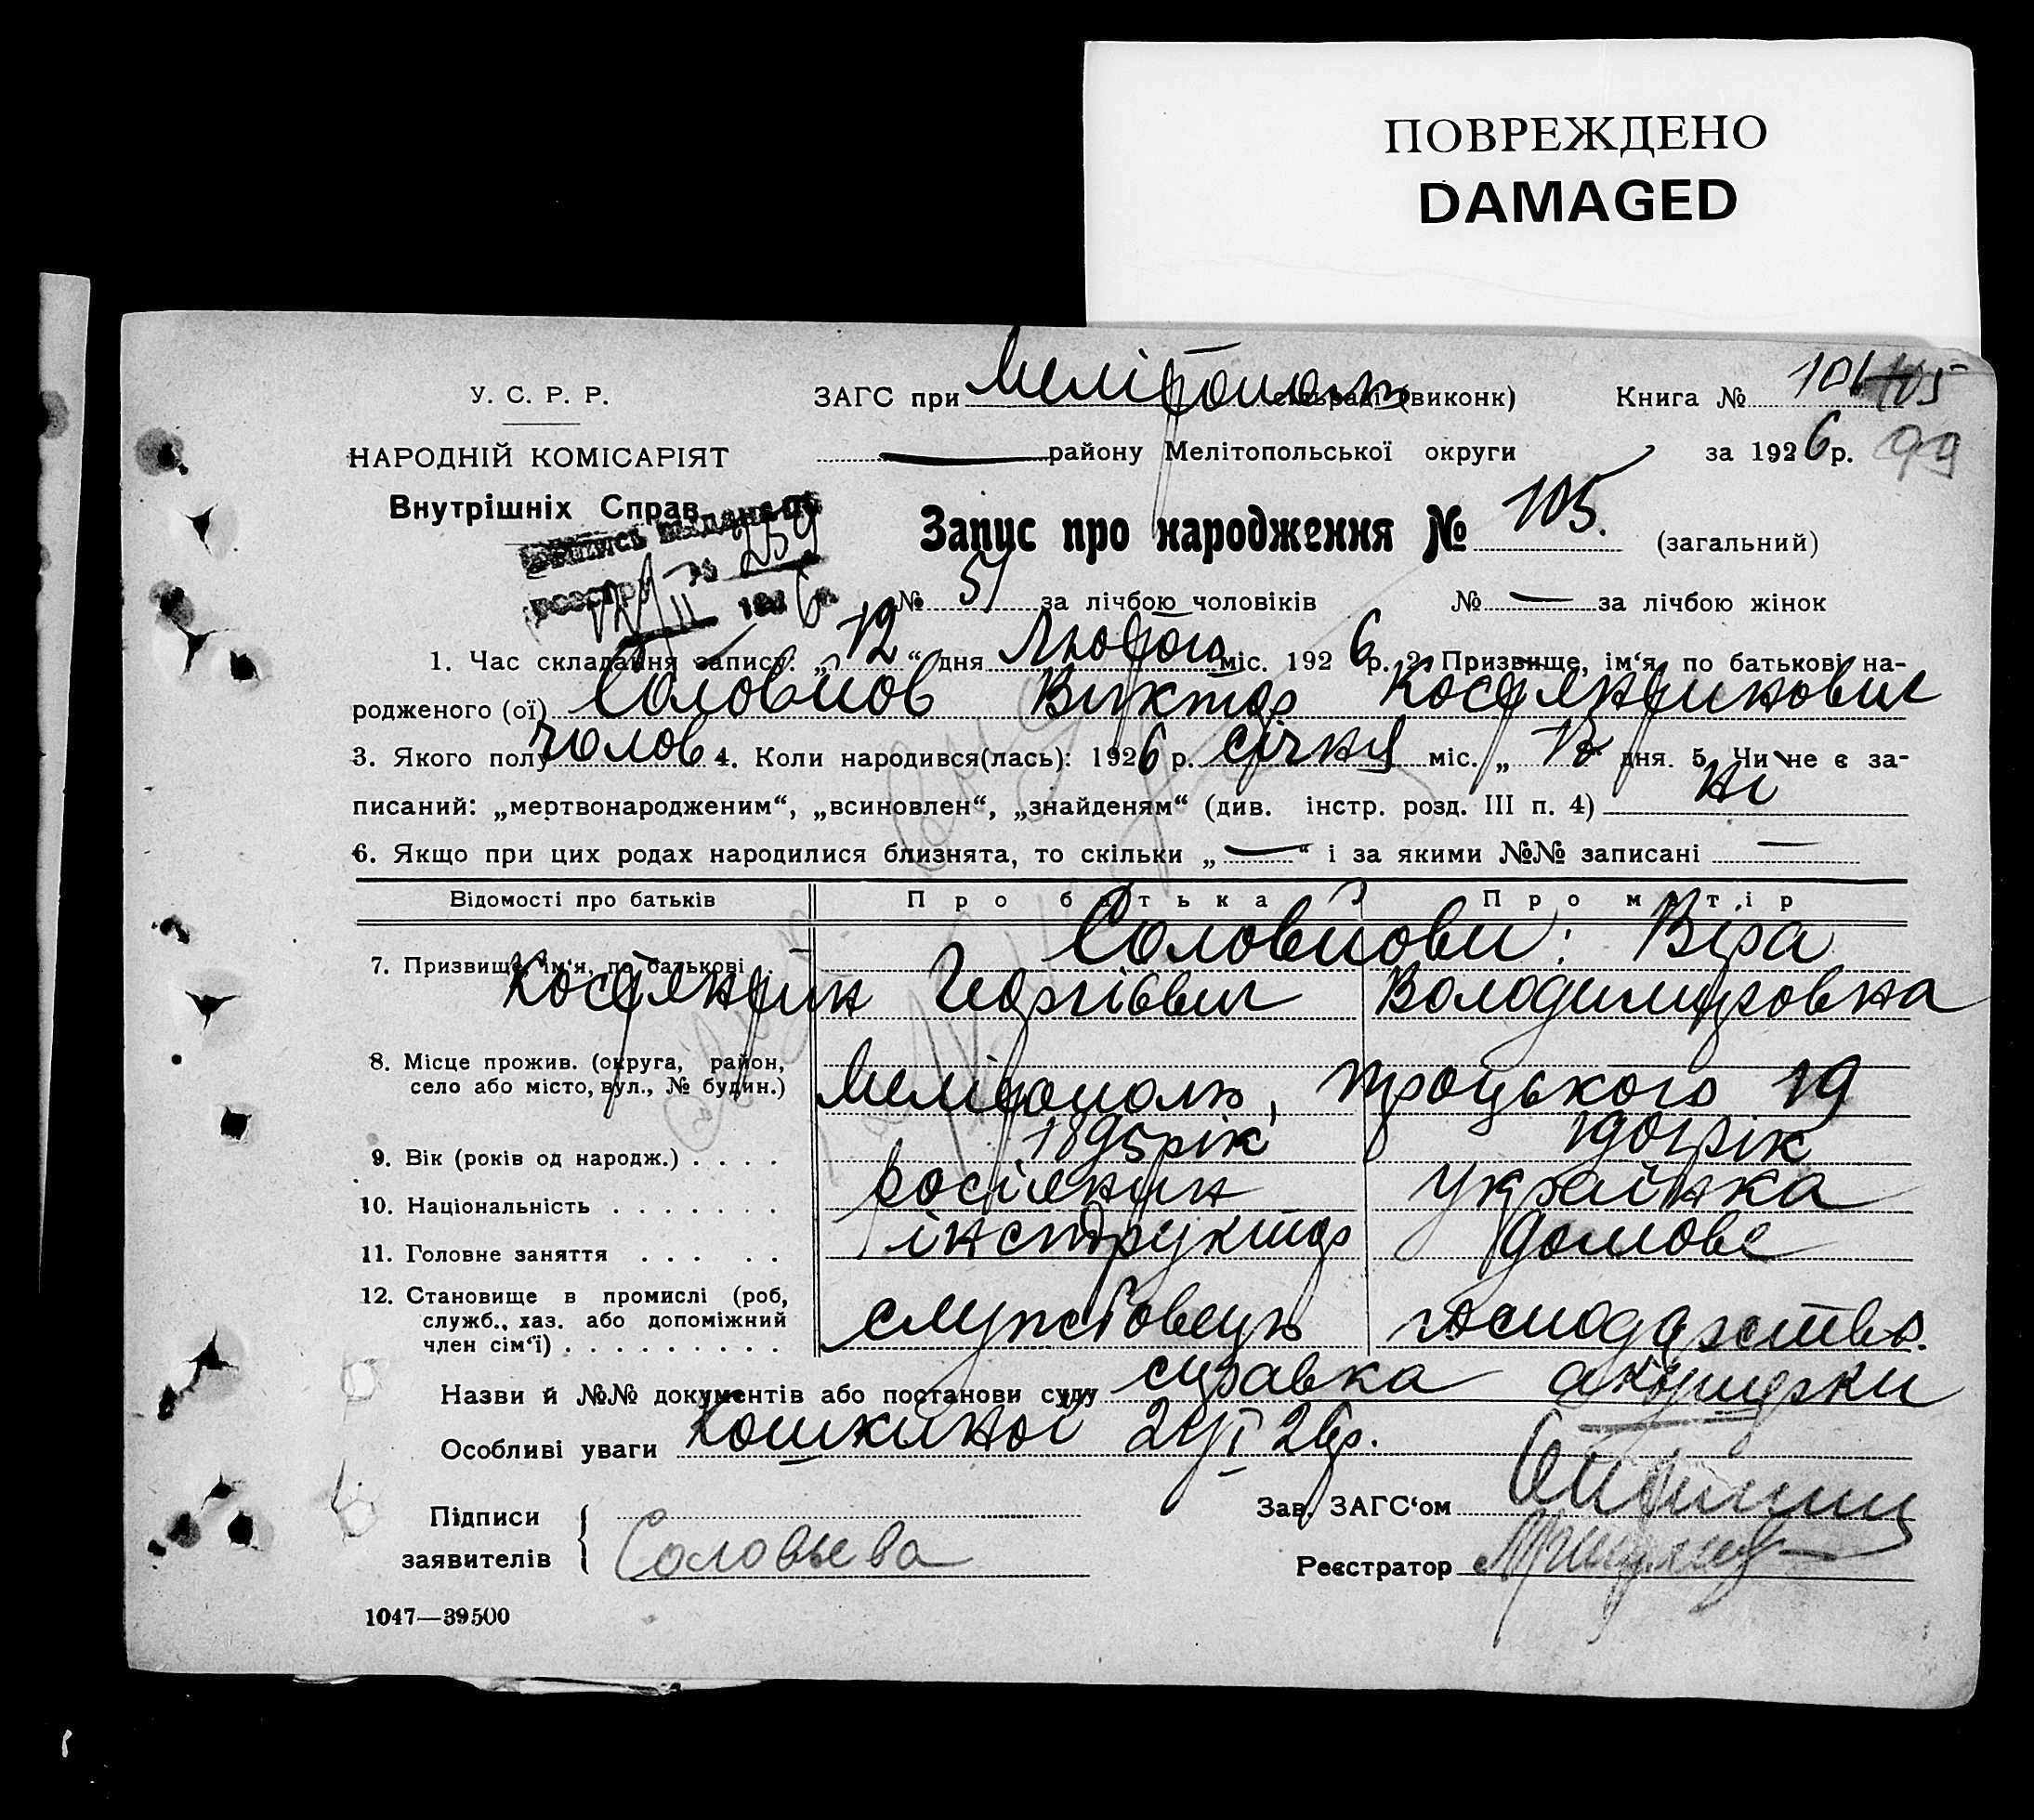 ПОВРЕЖДЕНО
DAMAGED
У. С. Р. Р.
ЗАГС при Мелітополь сільраді (виконк) Книга № 101 105
НАРОДНІЙ КОМІСАРІЯТ
району Мелітопольської округи за 1926 р. 99
Внутрішніх Справ
Запис про народження № 105. (загальний)
259
№ 51 за лічбою чоловіків № — за лічбою жінок
1. Час складання запису: „12“ дня Лютого міс. 1926 р. 2. Призвище, ім‘я, по батькові на-
родженого (ої) Соловйов Виктор Костянтинович
3. Якого полу чолов 4. Коли народився(лась): 1926 р. січня міс. „12“ дня. 5. Чи не є за-
писаний: „мертвонародженим“, „всиновлен“, „знайденям“ (див. інстр. розд. III п. 4) ні
6. Якщо при цих родах народилися близнята, то скільки „—“ і за якими №№ записані —
Відомості про батьків Про батька Про матір
7. Призвище, ім‘я, по батькові Соловйови: Віра
Костянтин Георгіевич Володимировна
8. Місце прожив. (округа, район,
село або місто, вул., № будин.) Мелітополь, Троцького 19
9. Вік (років од народж.) . . . . 1895 рік 1901 рік
10. Національність . . . . . . . росіянин Українка
11. Головне заняття . . . . . інструктор домове
12. Становище в промислі (роб,
служб., хаз. або допоміжний
член сім‘ї) . . . . . . . . . службовець господарство.
Назви й №№ документів або постанови суду справка акушерки
Особливі уваги Кошкиной 2/II 26р.
Підписи
заявителів Соловьева
Зав. ЗАГС‘ом
Реєстратор
1047—39500